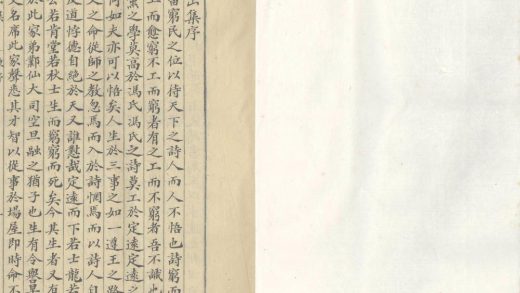 集序
窮氏之位以待天下之詩人而人不悟也詩窮而
工而愈窮不工而窮者有之工而不窮者吾不識也
黨之學莫高於馮氏馮氏之詩莫工於定遠定遠之
何如夫亦可以悟矣人生於三事之如一遵王之路
父之命從師之教忽焉而入於詩惘焉而以詩人自
反道悖德自絕於天又誰懟哉定遠而下若士龍若
公若肯堂若秋士生而窮窮而死矣今其生者又有
於此家弟鄴仙大司空旦融之猶子也生有令譽早
名席此家聲悉其才智以從事於場屋即時命不